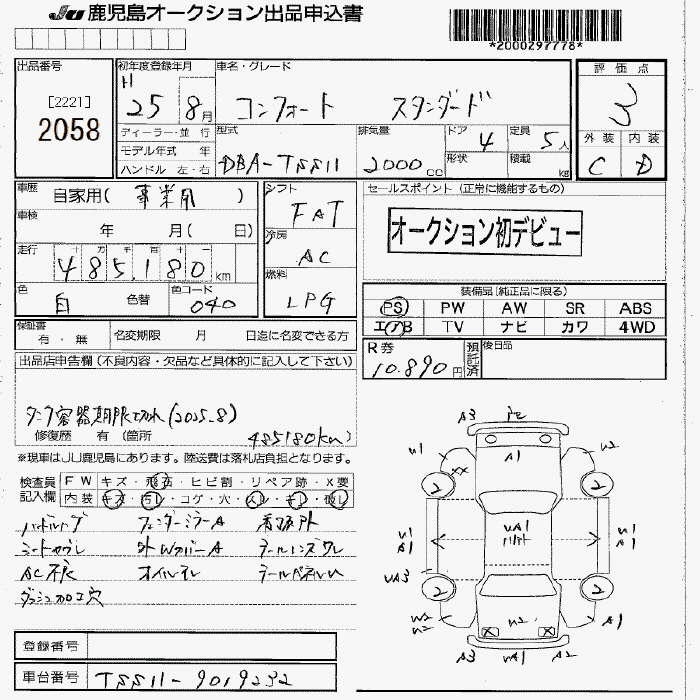 JU 鹿児島オークション出品申込書
*2000297778*
出品番号
[2221]
2058
初年度登録年月
H
25 8月
車名・グレード
コンフォート スタンダード
評価点
3
外装 内装
C D
ディーラー・並 行
モデル年式 年
ハンドル 左・右
型式
DBA-TSS11
排気量
2000 cc
ドア
4
形状
定員
5人
積載
kg
車歴
自家用( 事業用 )
車検
年 月( 日)
走行
十 万 千 百 十 一
485,180 km
色
白
色替
色コード
040
シフト
FAT
冷房
AC
燃料
LPG
セールスポイント (正常に機能するもの)
オークション初デビュー
装備品(純正品に限る)
PS PW AW SR ABS
エアB TV ナビ カワ 4WD
保証書
有・無
名変期限 月 日迄に名変できる方
R券
10.890円
預託済
後日品
出品店申告欄(不良内容・欠品など具体的に記入して下さい)
タンク容器期限切れ(2025.8)
修復歴 有(箇所 485180km)
※現車はJU鹿児島にあります。陸送費は落札店負担となります。
検査員記入欄
FW キズ・飛石・ヒビ割・リペア跡・X要
内装 キズ・汚れ・コゲ・穴・
フェンダーミラーA
シートカブレ 外WカバーA テールレンズワレ
AC不良 オイルモレ
ダッシュ加工穴
登録番号
車台番号 TSS11-9019232
A3
A1
W1
W2
XX
2
2
W1
A1
WA1
W1
A1
WA3
2
2
W2
W2
W2
A1
X
X
A3
WA1
A2